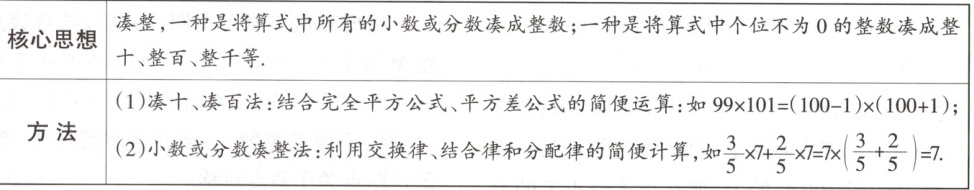 核心思想
凑整,一种是将算式中所有的小数或分数凑成整数;一种是将算式中个位不为 0 的整数凑成整
十、整百、整千等.
方法
(1)凑十、凑百法:结合完全平方公式、平方差公式的简便运算:如 99×101=(100-1)×(100+1);
(2)小数或分数凑整法:利用交换律、结合律和分配律的简便计算,如3/5×7+2/5×7=7×(3/5+2/5)=7.